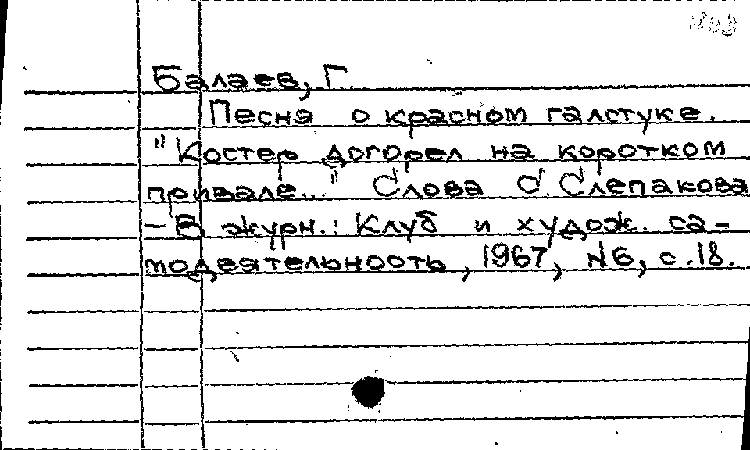 Балаев, Г.
Песня о красном галстуке.
"Костер догорел на коротком
привале..." Слова С. Слепакова
- В журн.: Клуб и худож. са-
модеятельность, 1967, №6, с.18.